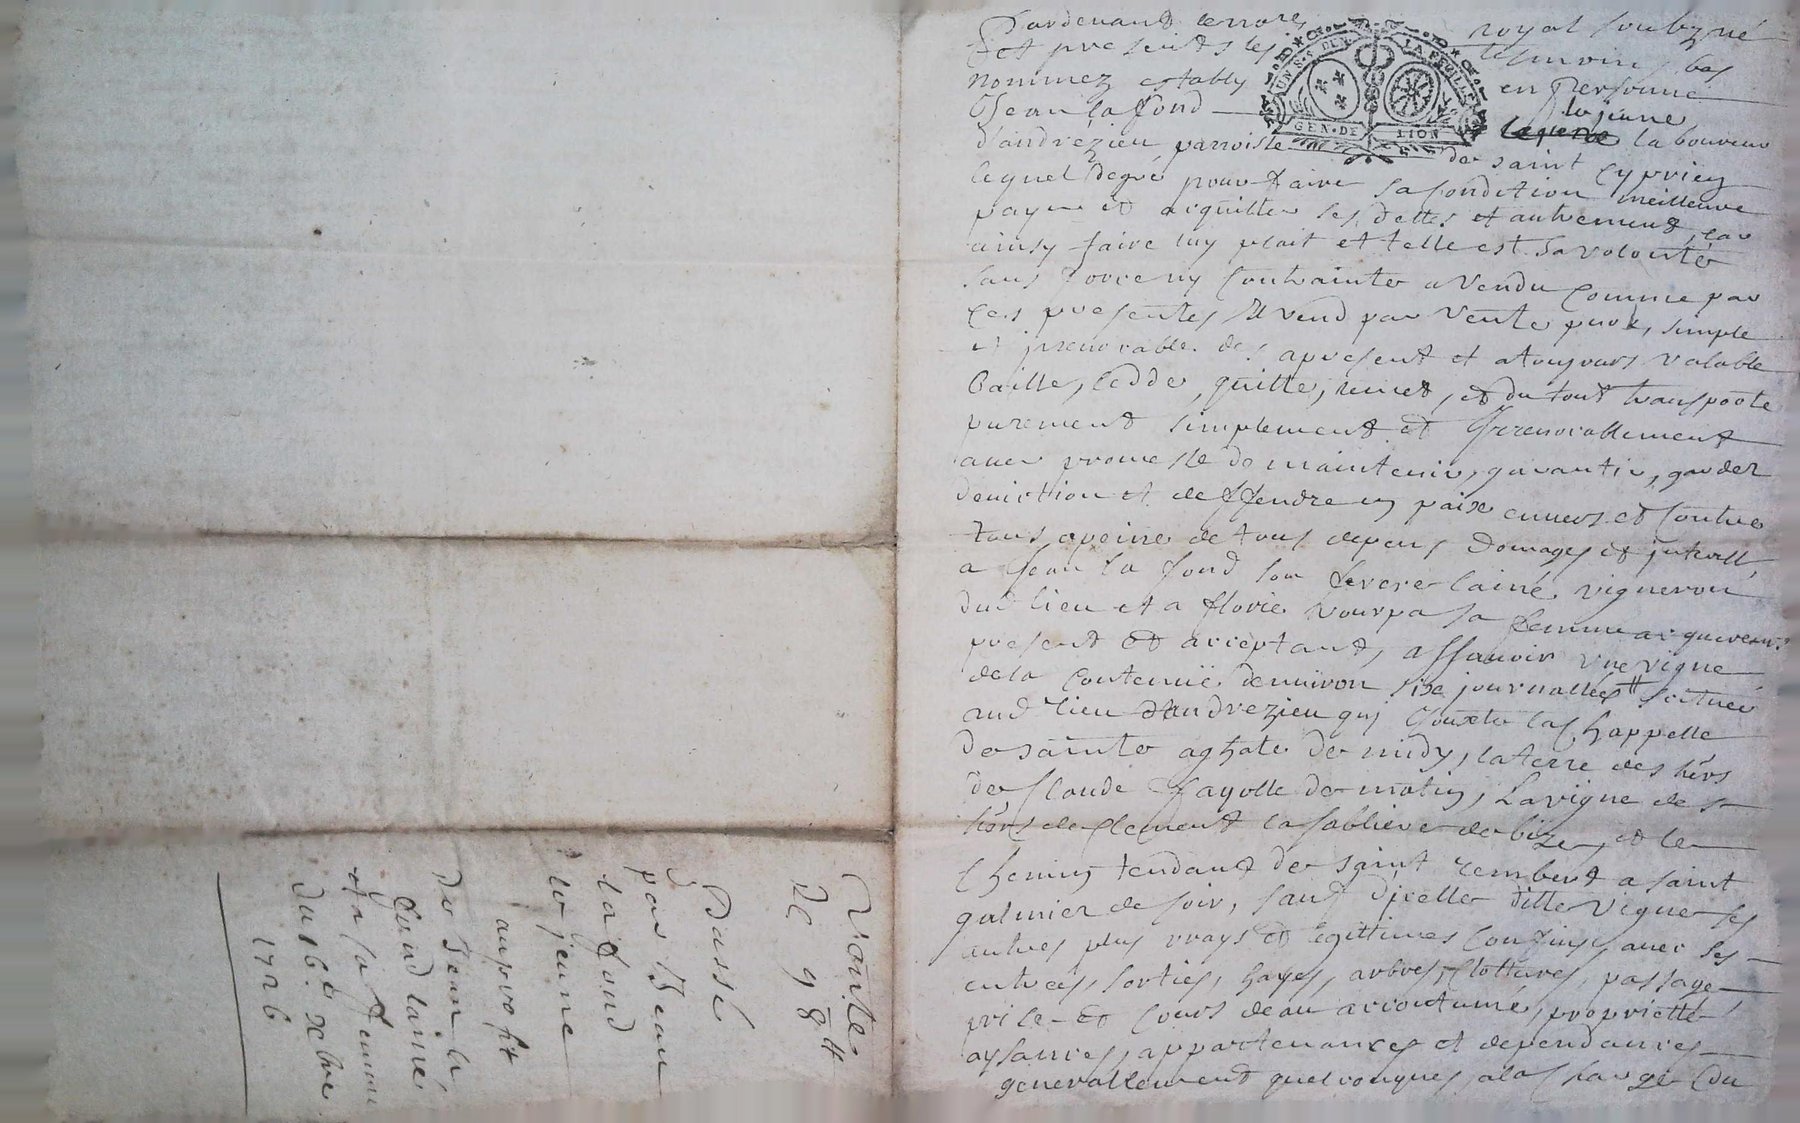 Vante
de 98 tt
passé
par Jean
la fond
le jeune
au profit
De Jean la
fond lainé
et a sa femme
du 16e xbre
1726
Pardevant le no.re royal soubzné
Et presents les tesmoins bas
nommez estably en Personne
Jean la fond le jeune laboureur
d'andrézieu parroisse de saint Cyprien
lequel degré pour faire sa condition meilleure
payer et acquitter ses dettes et autrement, car
ainsy faire luy plait et telle est sa volonté
sans force ny Contrainte a Vendu Comme par
Ces presentes Il vend par Vente pure, simple
et jrrevocable des apresent et atousjours valable
baille, cedde, quitte, remet, et du tout transporte
purement simplement et Jrrevocablement
avec promesse de maintenir, garantir, garder
deviction et deffendre en paix envers et Contre
tous, apeine de tous depens domages et jnterestz
a Jean la fond son frere lainé vigneron
dud lieu et a florie Vourpa sa femme acquereurs
present et acceptant, assavoir vne vigne
de la Contenuë denuiron six journallées scituée
aud lieu dandrezieu qui Jouxte la Chappelle
de sainte aghate de midy, la terre des hérs
de Claude fayolle de matin, La vigne des
hérs de Clement la sabliere de bize, et le
Chemin tendant de saint rembert a saint
galmier de soir, sauf dicelle ditte vigne ses
autres plus vrays et legittimes Confins, avec ses
entrées, sorties, hayes, arbres, Clottures, passage
prise et Cours deau accoutumé, proprietté
aysances, appartenances et dependances
generallement quelconques, a la Charge du